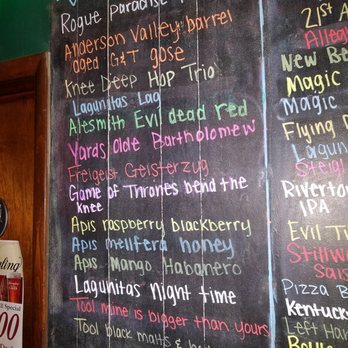 Rogue Paradise
Anderson Valley barrel
aged G&T gose
Knee Deep Hop Trio
Lagunitas Lag
Alesmith Evil dead red
Yards Olde Bartholomew
Freigeist Geisterzug
Game of Thrones bend the
Knee
Apis raspberry blackberry
Apis mellifera honey
Apis Mango Habanero
Lagunitas Night time
Tool mine is bigger than yours
Tool black malts &
21st A
Alle
New Be
Magic
Magic
Flying D
Lagun
Steigl
Riverto
IPA
Evil Tw
Stillw
Sais
Pizza B
Kentuck
Left Han
ling
Special
00